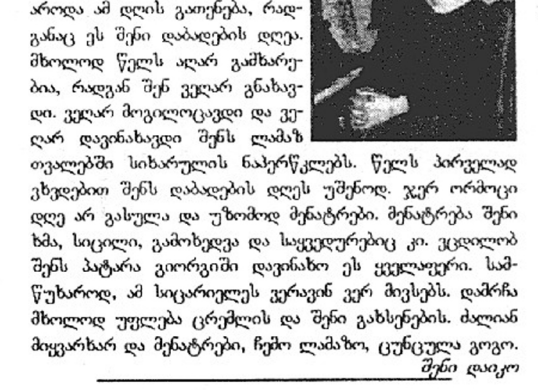 აროდა ამ დღის გათენება, რად-
განაც ეს შენი დაბადების დღეა.
მხოლოდ წელს აღარ გამხარე-
ბია, რადგან შენ ვეღარ გნახავ-
დი. ვეღარ მოგილოცავდი და ვე-
ღარ დავინახავდი შენს ლამაზ
თვალებში სიხარულის ნაპერწკლებს. წელს პირველად
ვხვდებით შენს დაბადების დღეს უშენოდ. ჯერ ორმოცი
დღე არ გასულა და უზომოდ მენატრები. მენატრება შენი
ხმა, სიცილი, გამოხედვა და საყვედურებიც კი. ვცდილობ
შენს პატარა გიორგიში დავინახო ეს ყველაფერი. სამ-
წუხაროდ, ამ სიცარიელეს ვერავინ ვერ შივსებს. დამრჩა
მხოლოდ უფლება ცრემლის და შენი გახსენების. ძალიან
მიყვარხარ და მენატრები, ჩემო ლამაზო, ცუნცულა გოგო.
შენი დაიკო